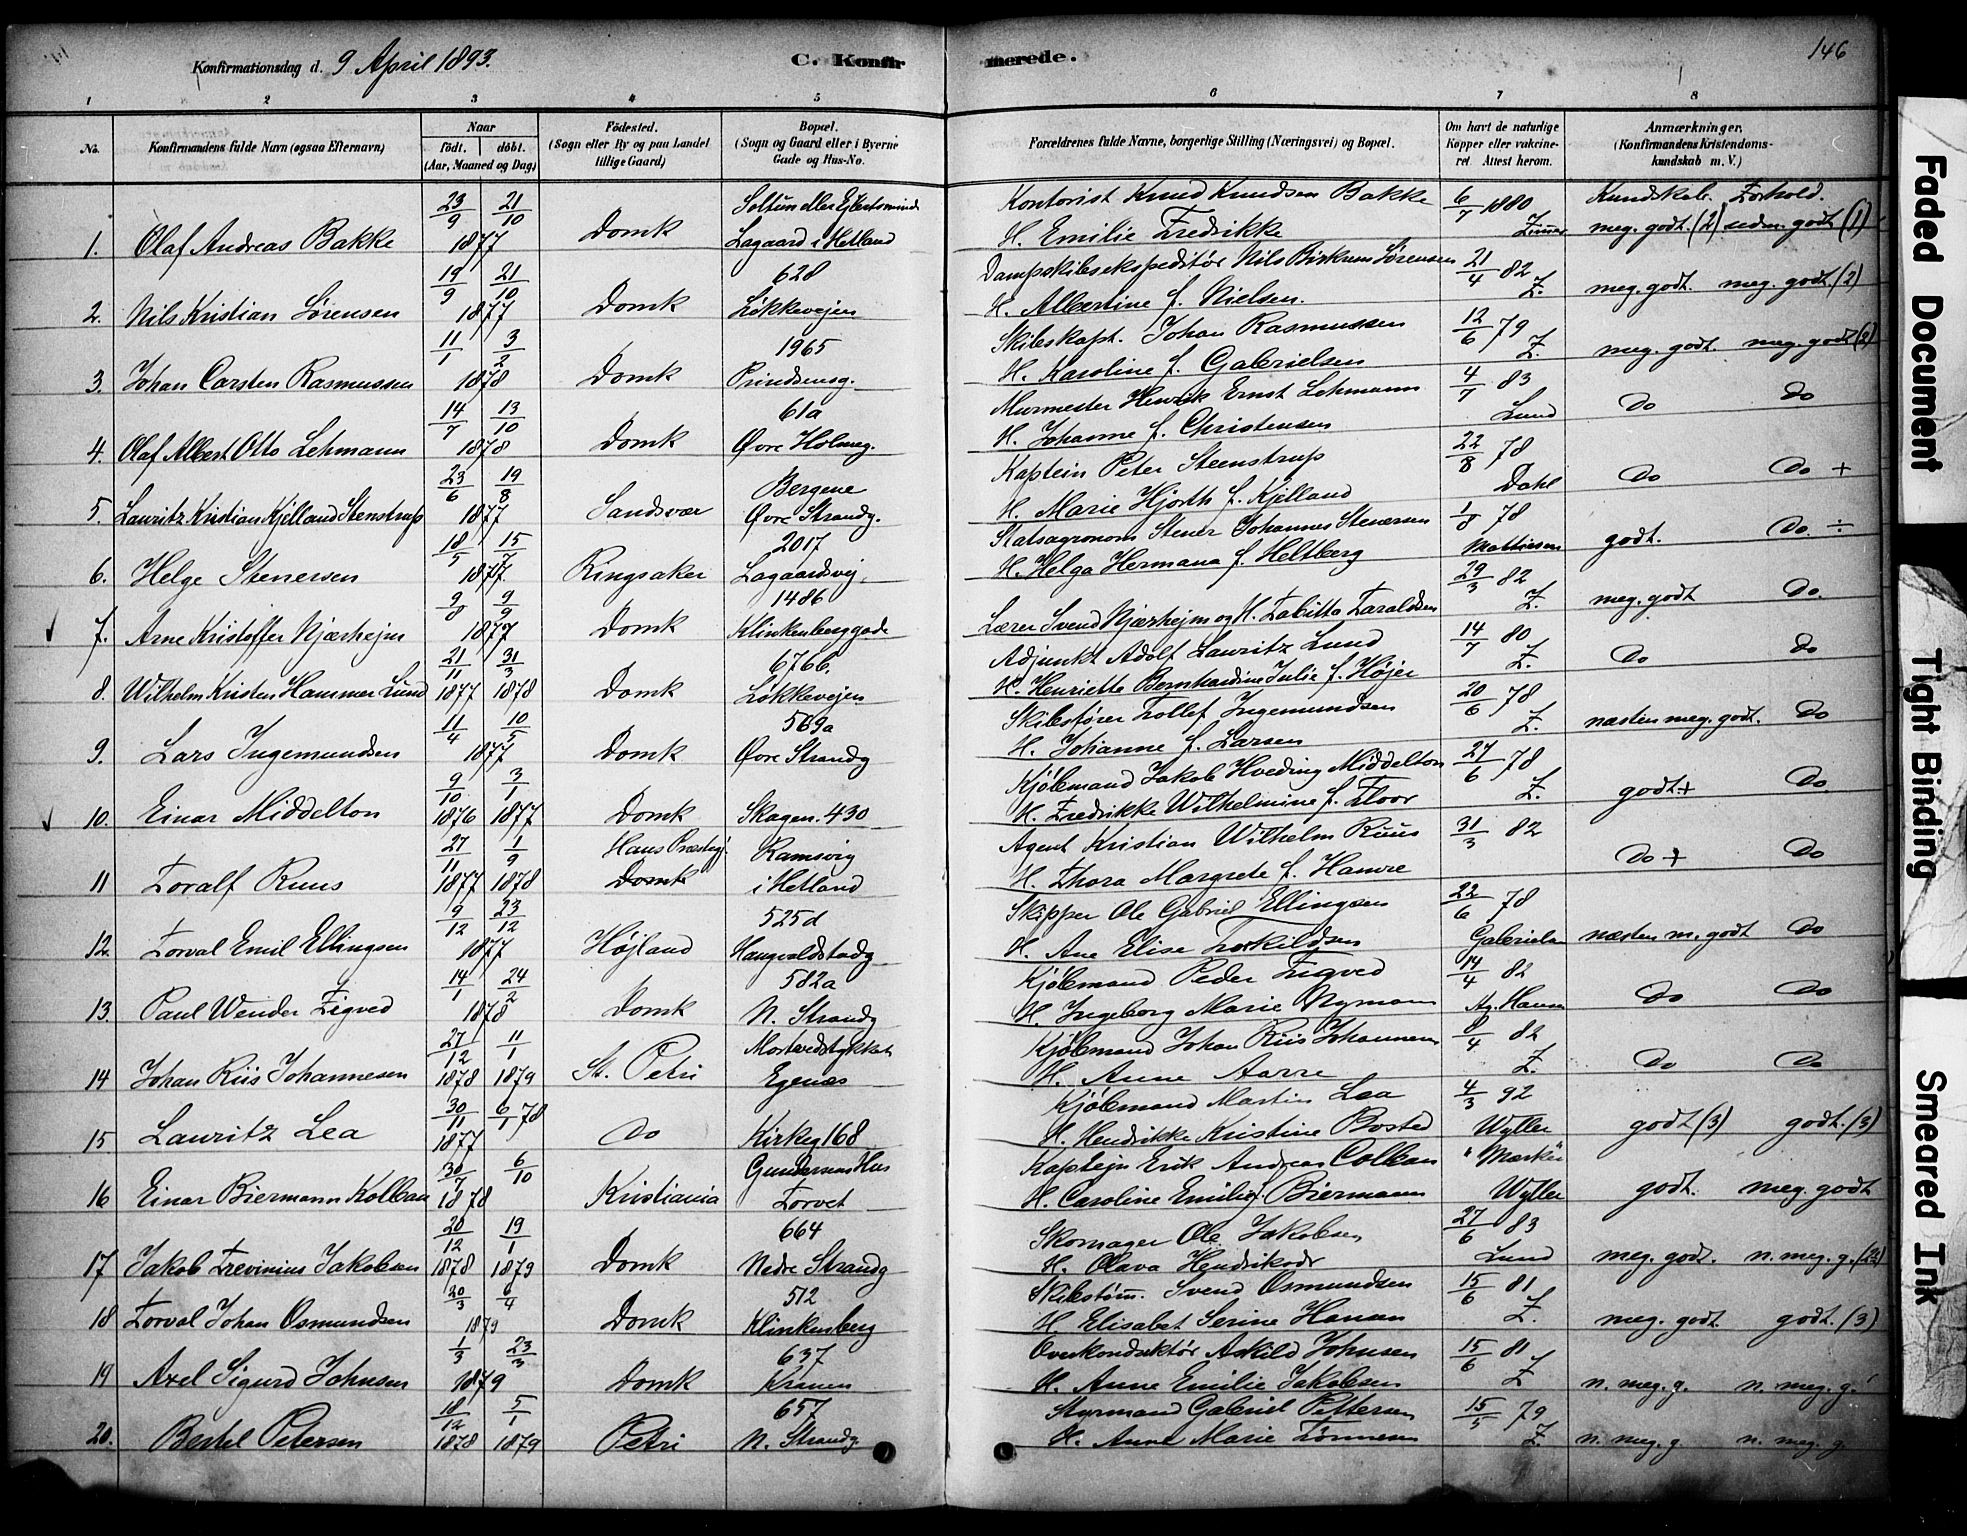 Konfirmationsdag d. 9 April 1893.
C. Konfirmerede.
146
1 2 3 4 5 6 7 8
No.
Konfirmandens fulde Navn (ogsaa Efternavn)
Naar født. døbt. (Aar, Maaned og Dag)
Fødested. (Sogn eller By og paa Landet tillige Gaard)
Bopæl. (Sogn og Gaard eller i Byerne Gade og Hus-No.
Forældrenes fulde Navne, borgerlige Stilling (Næringsvei) og Bopæl.
Om havt de naturlige Kopper eller vakcineret. Attest herom.
Anmærkninger. (Konfirmandens Kristendomskundskab m. V.)
Kundskab. Forhold.
1. Olaf Andreas Bakke 23/9 21/10 1877 Domk Lagaard i Hetland Kontorist Knud Knudsen Bakke H. Emilie Fredrikke 6/7 1880 meg. godt. (2) sedm. godt (1)
2. Nils Kristian Sørensen 19/9 21/10 1877 Domk 628 Løkkeveien Dampskibsekspeditør Nils Sørensen H. Albertine f. Nielsen. 21/4 82 Z. meg. godt. meg. godt. (2)
3. Johan Carsten Rasmussen 11/1 3/2 1878 Domk 1965 Prindsensg. Skibskapt. Johan Rasmussen H. Karoline f. Gabrielsen 12/6 79 Z. meg. godt. meg. godt (2)
4. Olaf Albert Otto Lehmann 14/7 13/10 1878 Domk 61a Øvre Holmeg. Murmester Henrik Ernst Lehmann H. Johanne f. Christensen 4/7 83 Lund Do Do
5. Lauritz Kristian Kjelland Stenstrup 23/6 19/8 1877 Sandsvær Bergene Øvre Strandg. Kaptein Peter Steenstrup H. Marie Hjorth f. Kjelland 22/8 78 Dahl Do Do +
6. Helge Stenersen 18/5 15/7 1877. Ringsaker 2017 Lagaardsvej. Statsagronom Stener Johannes Stenersen H. Helga Hermana f. Heltberg 1/8 78 Mathiesen godt. Do. ÷
7. Arne Kristoffer Njærhejm 9/8 9/9 1877 Domk 1486 Klinkenberggade Lærer Svend Njærhejm og H. Tabitta Taraldsen 29/3 82 Z. meg. godt Do.
8. Wilhelm Kristen Hammer Lund 21/11 1877 31/3 1878 Domk 676b. Løkkeveien Adjunkt Adolf Lauritz Lund H. Henriette Bernhardine Julie f. Højer 14/7 80 Z. Do Do
9. Lars Ingemundsen 11/4 10/5 1877 Domk 569a Øvre Strandg Skibsfører Tollef Ingemundsen H. Johanne f. Larsen 20/6 78 Z. næsten meg. godt. Do
10. Einar Middelton 9/10 1876 3/1 1877 Domk Skagen. 430 Kjøbmand Jakob Hveding Middelton H. Fredrikke Wilhelmine f. Floor 27/6 78 Z. godt + Do
11 Toralf Ruus 27/11 1877 1/9 1878 Haus Præstegj. Domk Ramsvig i Hetland Agent Kristian Wilhelm Ruus H. Thora Margrete f. Hamre 31/3 82 Do + Do
12. Torval Emil Ellingsen 9/12 23/12 1877 Højland 525d Haugvaldstadg Skipper Ole Gabriel Ellingsen H. Ane Elise Torkildsen 22/6 78 Gabrielsen næsten m. godt Do
13. Paul Wender Sigved 14/1 24/2 1878 Domk 582a N. Strandg Kjøbmand Peder Sigved H. Ingeborg Marie Nymann 14/4 82 Ag. Hansen Do Do
14 Johan Riis Johannesen 27/12 1878 11/1 1879 St. Petri Egenæs Kjøbmand Johan Riis Johannesen H. Anne Aarre 8/4 82 Z. Do Do
15 Lauritz Lea 30/11 1877 6/1 78 Do Kirkeg 168 Kjøbmand Martin Lea H. Hendrikke Kristine Bosted 4/3 92 Wyller godt (3) godt. (3)
16 Einar Biermann Kolban 30/7 6/10 1878 Kristiania Gundersens Hus Torvet Kaptejn Erik Andreas Colban H. Caroline Emilie f. Biermann Wyller godt. meg. godt
17 Jakob Trevinius Jakobsen 20/12 1878 19/1 1879 Domk 664 Nedre Strandg Skomager Ole Jakobsen H. Olava Henriksdr 27/6 83 Lund meg. godt. n. meg. g.
18 Torval Johan Osmundsen 20/3 6/4 1879 Domk 512 Klinkenberg Skibstøm. Svend Osmundsen H Elisabet Serine Hansen 15/6 81 Z. meg. godt. godt. (3)
19 Axel Sigurd Johnsen 1/3 23/3 1879 Domk 637 Kranen Overkonduktør Askild Johnsen H. Anne Emilie Jakobsen 15/6 81 Z n. meg. g. n. meg. g.
20. Bertel Petersen 18/12 1878 5/1 1879 Petri 657 N. Strandg. Styrmand Gabriel Pettersen H. Anne Marie Tønnesen 15/5 79 Z. n. meg. g. n. meg. g.
Faded Document
Tight Binding
Smeared Ink